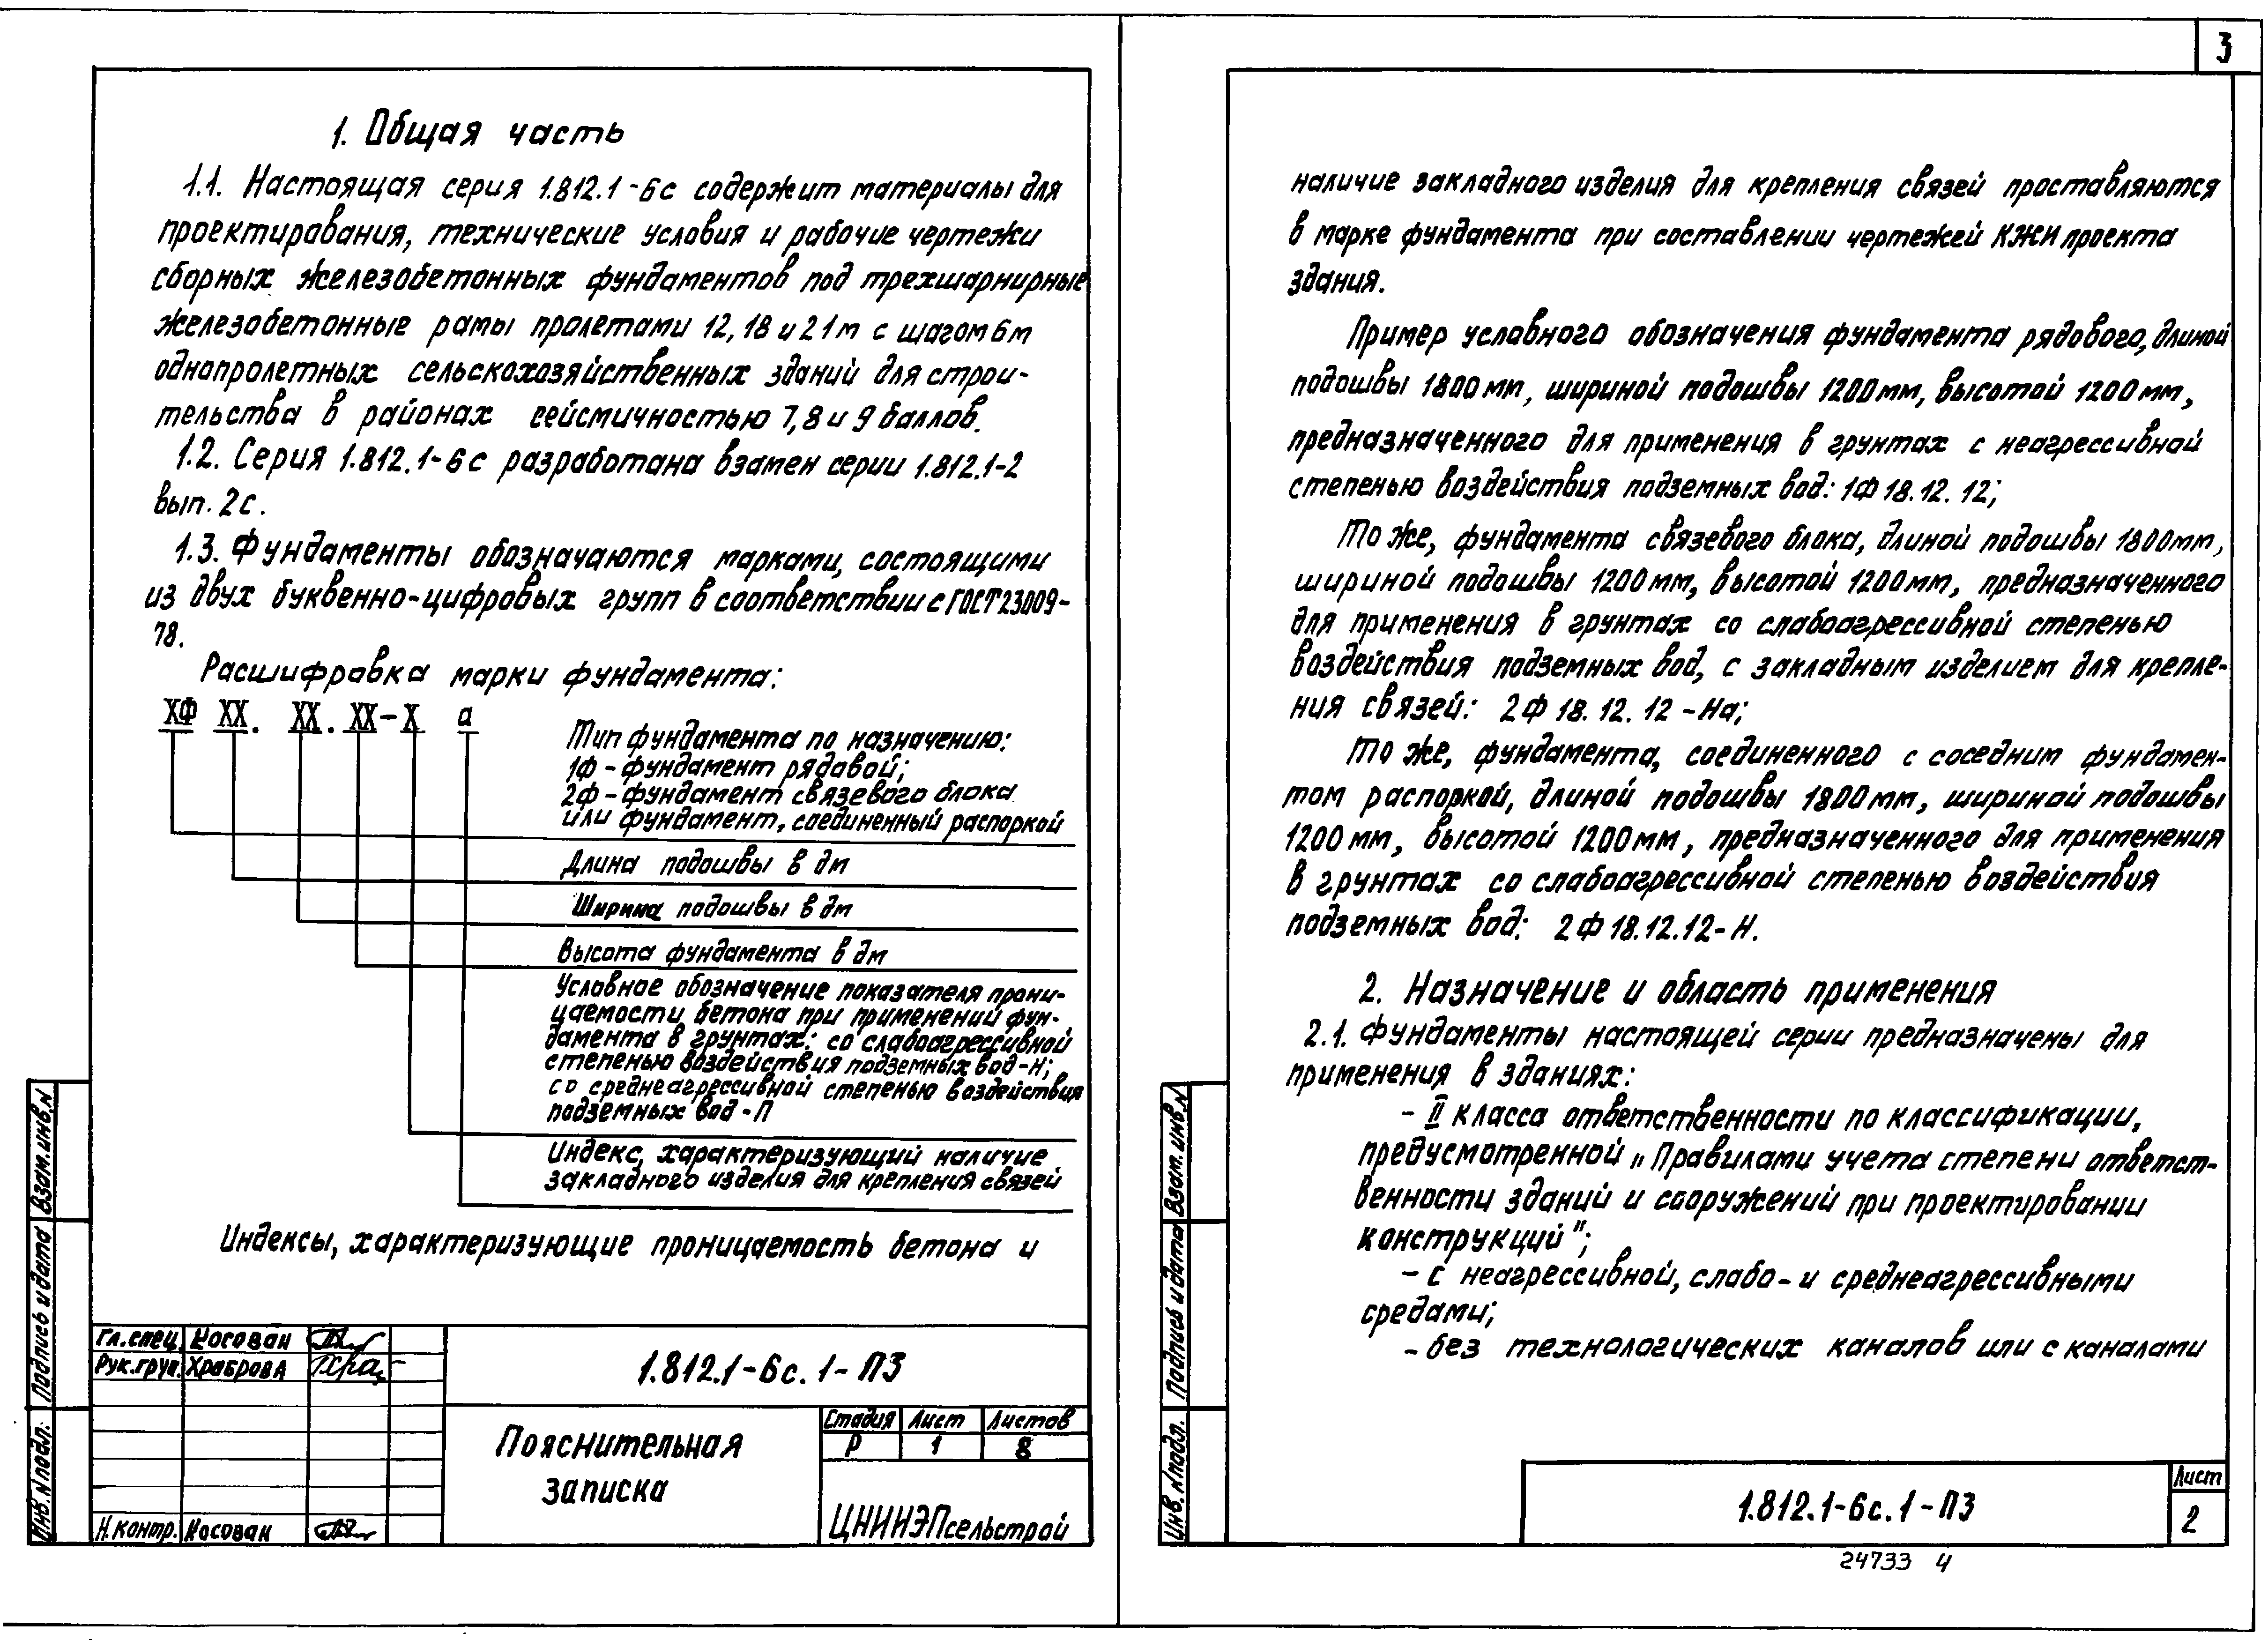 1. Общая часть
1.1. Настоящая серия 1.812.1-6с содержит материалы для
проектирования, технические условия и рабочие чертежи
сборных железобетонных фундаментов под трехшарнирные
железобетонные рамы пролетами 12, 18 и 21м с шагом 6м
однопролетных сельскохозяйственных зданий для строи-
тельства в районах сейсмичностью 7, 8 и 9 баллов.
1.2. Серия 1.812.1-6с разработана взамен серии 1.812.1-2
вып. 2с.
1.3. Фундаменты обозначаются марками, состоящими
из двух буквенно-цифровых групп в соответствии с ГОСТ 23009-
78.
Расшифровка марки фундамента:
ХФ ХХ. ХХ. ХХ-Х а
Тип фундамента по назначению:
1Ф - фундамент рядовой;
2Ф - фундамент связевого блока
или фундамент, соединенный распоркой
Длина подошвы в дм
Ширина подошвы в дм
Высота фундамента в дм
Условное обозначение показателя прони-
цаемости бетона при применений фун-
дамента в грунтах: со слабоагрессивной
степенью воздействия подземных вод-Н;
со среднеагрессивной степенью воздействия
подземных вод - П
Индекс, характеризующий наличие
закладного изделия для крепления связей
Индексы, характеризующие проницаемость бетона и
Гл.спец. Косован
Рук.груп. Храброва
Н.контр. Косован
1.812.1-6с.1-ПЗ
Пояснительная
записка
Стадия Лист Листов
Р 1 8
ЦНИИЭПсельстрой
Инв.N подл. Подпись и дата Взам.инв.N
3
наличие закладного изделия для крепления связей проставляются
в марке фундамента при составлении чертежей КЖИ проекта
здания.
Пример условного обозначения фундамента рядового, длиной
подошвы 1800мм, шириной подошвы 1200мм, высотой 1200мм,
предназначенного для применения в грунтах с неагрессивной
степенью воздействия подземных вод: 1Ф 18.12.12;
То же, фундамента связевого блока, длиной подошвы 1800мм,
шириной подошвы 1200мм, высотой 1200мм, предназначенного
для применения в грунтах со слабоагрессивной степенью
воздействия подземных вод, с закладным изделием для крепле-
ния связей: 2Ф 18.12.12-На;
То же, фундамента, соединенного с соседним фундамен-
том распоркой, длиной подошвы 1800мм, шириной подошвы
1200мм, высотой 1200мм, предназначенного для применения
в грунтах со слабоагрессивной степенью воздействия
подземных вод: 2Ф 18.12.12-Н.
2. Назначение и область применения
2.1. Фундаменты настоящей серии предназначены для
применения в зданиях:
- II класса ответственности по классификации,
предусмотренной „Правилами учета степени ответст-
венности зданий и сооружений при проектировании
конструкций";
- с неагрессивной, слабо- и среднеагрессивными
средами;
- без технологических каналов или с каналами
1.812.1-6с.1-ПЗ
Лист
2
Инв.N подл. Подпись и дата Взам.инв.N
24733 4